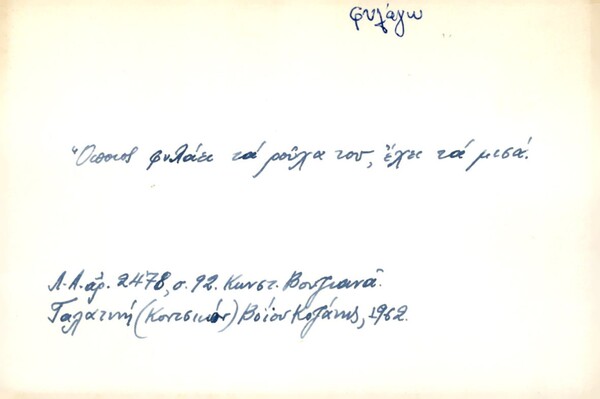 φυλάγω
Ὅποιος φυλάει τά ροῦχα του, ἔχει τά μισά.
Λ.Λ. ἀρ. 2478, σ. 92. Κωνστ. Βουζιανᾶ.
Γαλατινή (Κοντσικόν) Βοΐου Κοζάνης, 1962.